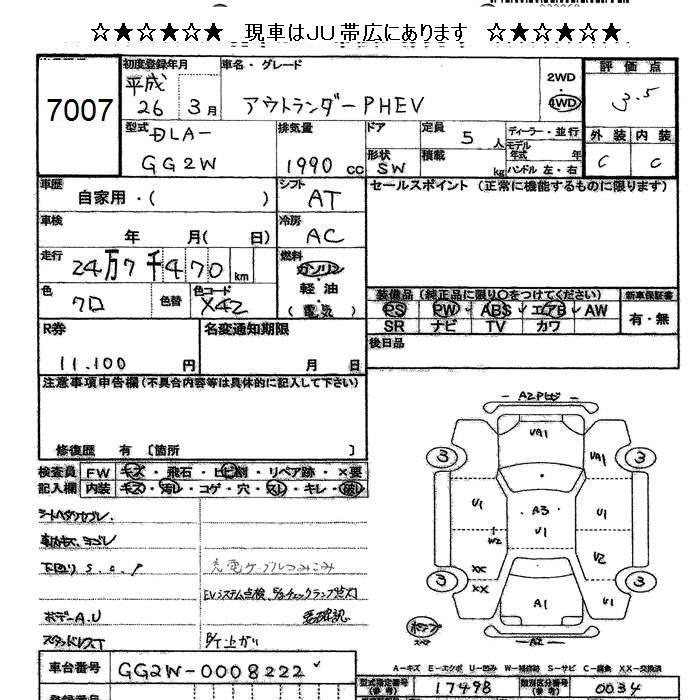 ☆★☆★☆★ 現車はJU帯広にあります ☆★☆★☆★
7007
初度登録年月 車名・グレード 2WD 評価点
平成 26 3月 アウトランダーPHEV 4WD 3.5
型式 排気量 ドア 定員 5人 ディーラー・並行 外装 内装
DLA-
GG2W 1990cc 形状 SW 積載 kg モデル年式 年 ハンドル 左・右 C C
車歴 自家用・( ) シフト AT セールスポイント (正常に機能するものに限ります)
車検 年 月( 日) 冷房 AC
走行 24万7千470km 燃料 ガソリン
軽油
(電気)
色 クロ 色替 色コード X42
装備品 (純正品に限り○をつけてください) 新車保証書
PS PW ABS エアB AW 有・無
SR ナビ TV カワ
R券 11.100円 名変通知期限 月 日 後日品
注意事項申告欄 (不具合内容等は具体的に記入して下さい)
修復歴 有 〔箇所 〕
検査員 FW キズ・飛石・ヒビ割・リペア跡・×要
記入欄 内装 キズ・汚レ・コゲ・穴・スレ・キレ・破レ
シートヘタリヤブレ.
下回り S.C.P 充電ケーブルつみこみ
EVシステム点検
ボデーA.U
スタッドレスT
A2Pヒビ
UA1
3 UA1 3
U1 A3 U1
W2 U1
U2
XX
3 XX 3
A1 U1
A2
A-キズ E-エクボ U-凹み W-補修跡 S-サビ C-腐食 XX-交換済
車台番号 GG2W-0008222
型式指定番号 (参考) 17498 類別区分番号 (参考) 0034
登録番号